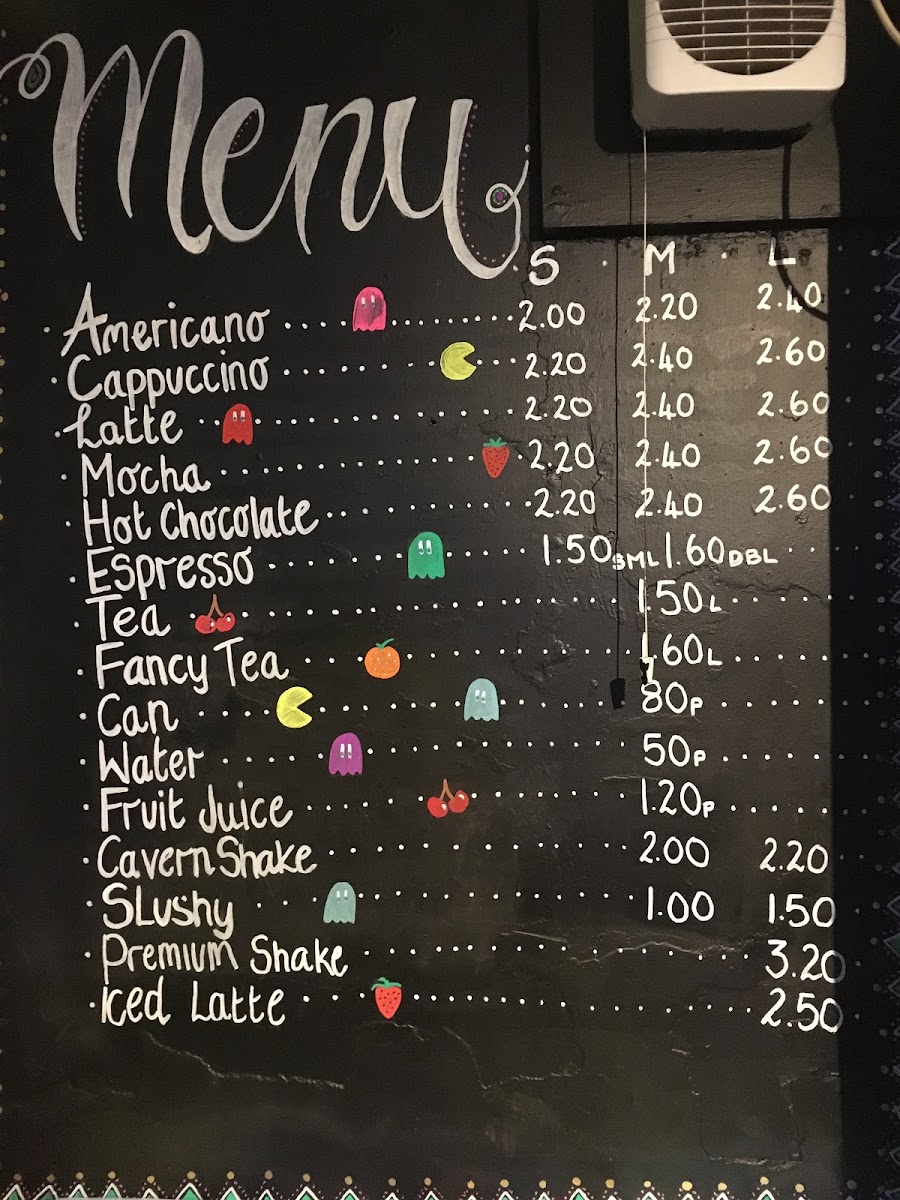 Menu
S M L
Americano 2.00 2.20 2.40
Cappuccino 2.20 2.40 2.60
Latte 2.20 2.40 2.60
Mocha 2.20 2.40 2.60
Hot Chocolate 2.20 2.40 2.60
Espresso 1.50 SML 1.60 DBL
Tea 1.50 L
Fancy Tea 1.60 L
Can 80p
Water 50p
Fruit Juice 1.20p
Cavern Shake 2.00 2.20
Slushy 1.00 1.50
Premium Shake 3.20
Iced Latte 2.50